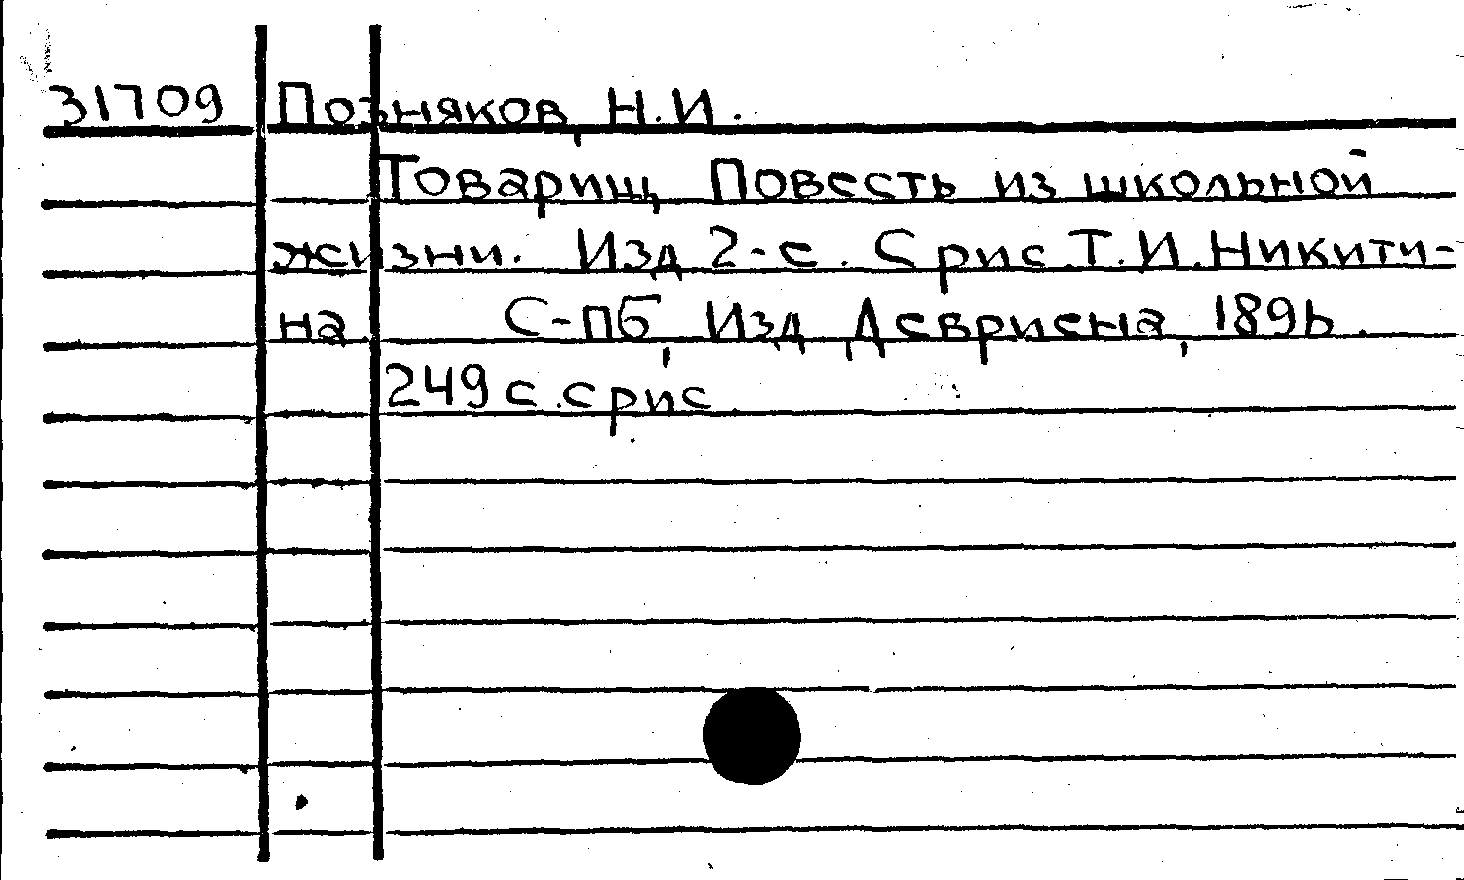 31709 Позняков, Н.И.
Товарищ. Повесть из школьной
жизни. Изд 2-е. С рис Т.И.Никити-
на С-пб, Изд Девриена, 1896.
249 с. с рис